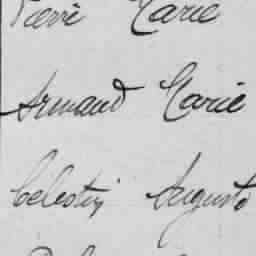 Pierre Marie
Armand Marie
Célestin Auguste